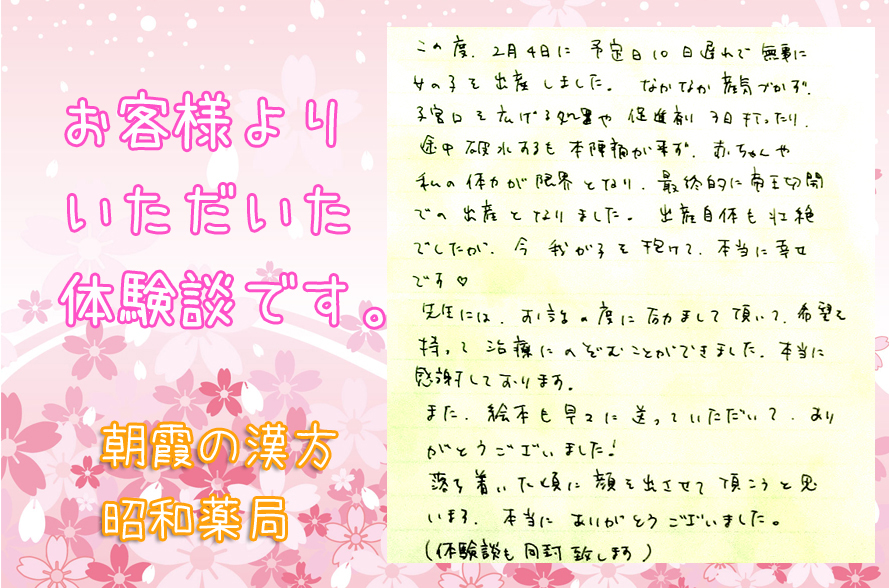 お客様より
いただいた
体験談です。
朝霞の漢方
昭和薬局
この度、2月4日に 予定日10日遅れで無事に
女の子を出産しました。 なかなか産気づかず、
子宮口を広げる処置や 促進剤3日打ったり、
途中破水するも本陣痛が来ず、赤ちゃんや
私の体力が限界となり、最終的に帝王切開
での出産となりました。 出産自体も壮絶
でしたが、今 我が子を抱けて、本当に幸せ
です♡
先生には、お話の度に励まして頂いて、希望を
持って 治療にのぞむことができました。本当に
感謝しております。
また、絵本も早々に送っていただいて、あり
がとうございました!
落ち着いた頃に顔を出させて頂こうと思
います。 本当に ありがとうございました。
(体験談も同封致します)